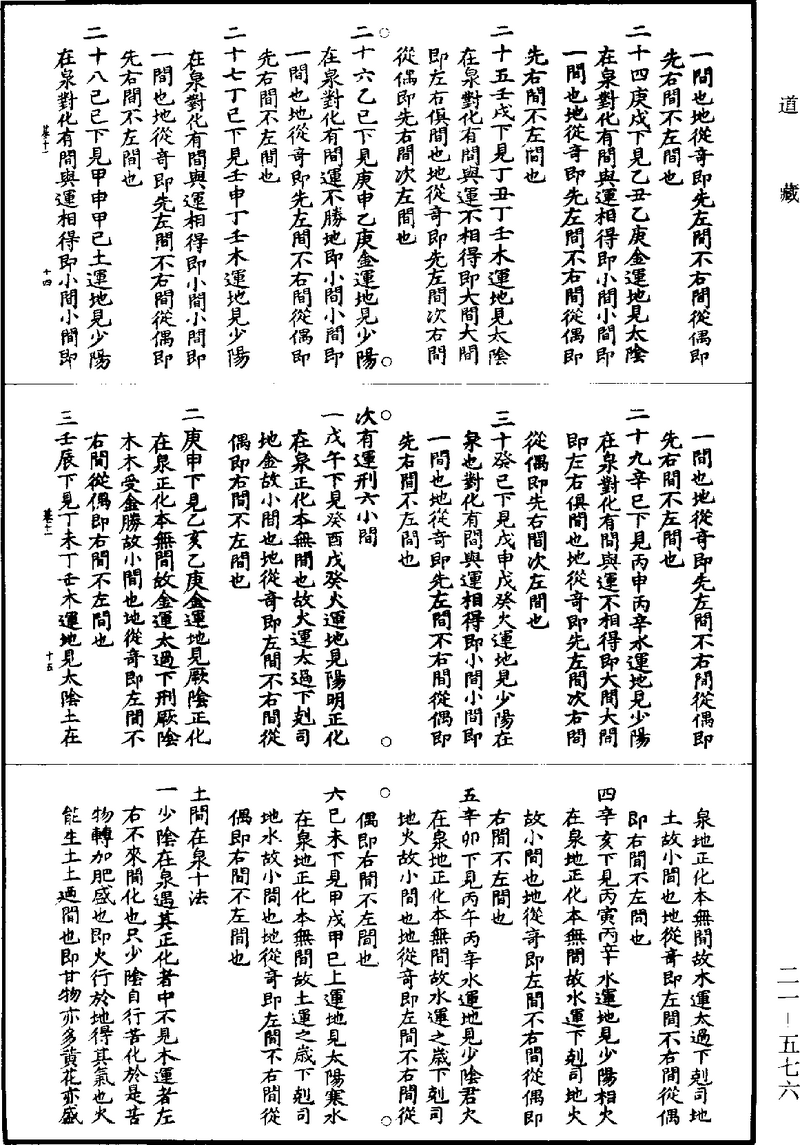 道藏
一間也地從奇即先左間不右間從偶即
先右間不左間也
二十四庚戌下見乙丑乙庚金運地見太陰
在泉對化有間與運相得即小間小間即
一間也地從奇即先左間不右間從偶即
先右間不左間也
二十五壬戌下見丁丑丁壬木運地見太陰
在泉對化有間與運不相得即大間大間
即左右俱間也地從奇即先左間次右間
從偶即先右間次左間也
二十六乙巳下見庚申乙庚金運地見少陽
在泉對化有間運不勝地即小間小間即
一間也地從奇即先左間不右間從偶即
先右間不左間也
二十七丁巳下見壬申丁壬木運地見少陽
在泉對化有間與運相得即小間小間即
一間也地從奇即先左間不右間從偶即
先右間不左間也
二十八己巳下見甲申甲己土運地見少陽
在泉對化有間與運相得即小間小間即
卷十一
十四
一間也地從奇即先左間不右間從偶即
先右間不左間也
二十九辛巳下見丙申丙辛水運地見少陽
在泉對化有間與運不相得即大間大間
即左右俱間也地從奇即先左間次右間
從偶即先右間次左間也
三十癸巳下見戊申戊癸火運地見少陽在
泉也對化有間與運相得即小間小間即
一間也地從奇即先左間不右間從偶即
先右間不左間也
次有運刑六小間
一戊午下見癸酉戊癸火運地見陽明正化
在泉正化本無間也故火運太過下剋司
地金故小間也地從奇即左間不右間從
偶即右間不左間也
二庚申下見乙亥乙庚金運地見厥陰正化
在泉正化本無間故金運太過下刑厥陰
木木受金勝故小間也地從奇即左間不
右間從偶即右間不左間也
三壬辰下見丁未丁壬木運地見太陰土在
卷十一
十五
泉地正化本無間故木運太過下剋司地
土故小間也地從奇即左間不右間從偶
即右間不左間也
四辛亥下見丙寅丙辛水運地見少陽相火
在泉地正化本無間故水運下剋司地火
故小間也地從奇即左間不右間從偶即
右間不左間也
五辛卯下見丙午丙辛水運地見少陰君火
在泉地正化本無間故水運之歲下剋司
地火故小間也地從奇即左間不右間從
偶即右間不左間也
六己未下見甲戌甲己土運地見太陽寒水
在泉地正化本無間故土運之歲下剋司
地水故小間也地從奇即左間不右間從
偶即右間不左間也
土間在泉十法
一少陰在泉遇其正化者中不見木運者左
右不來間化也只少陰自行苦化於是苦
物轉加肥盛也即火行於地得其氣也火
能生土土迺間也即甘物亦多黃花亦盛
二一－五七六